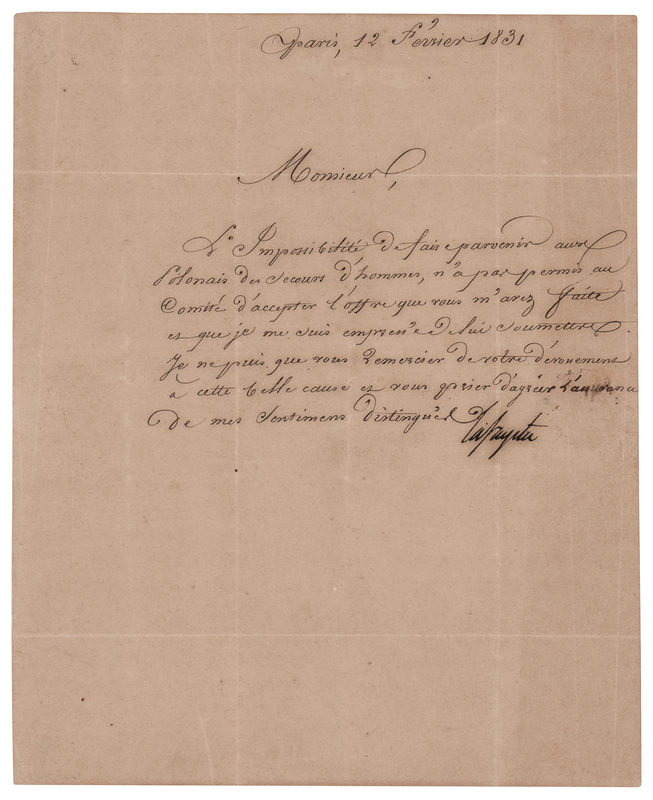 Paris, 12 Février 1831
Monsieur,
L'Impossibilité de faire parvenir aux
Polonais des secours d'hommes, n'a pas permis au
Comité d'accepter l'offre que vous m'avez faite
et que je me suis empressé de lui soumettre.
Je ne puis que vous remercier de votre dévouement
a cette belle cause et vous prier d'agréer l'assurance
De mes Sentimens distingués
Lafayette